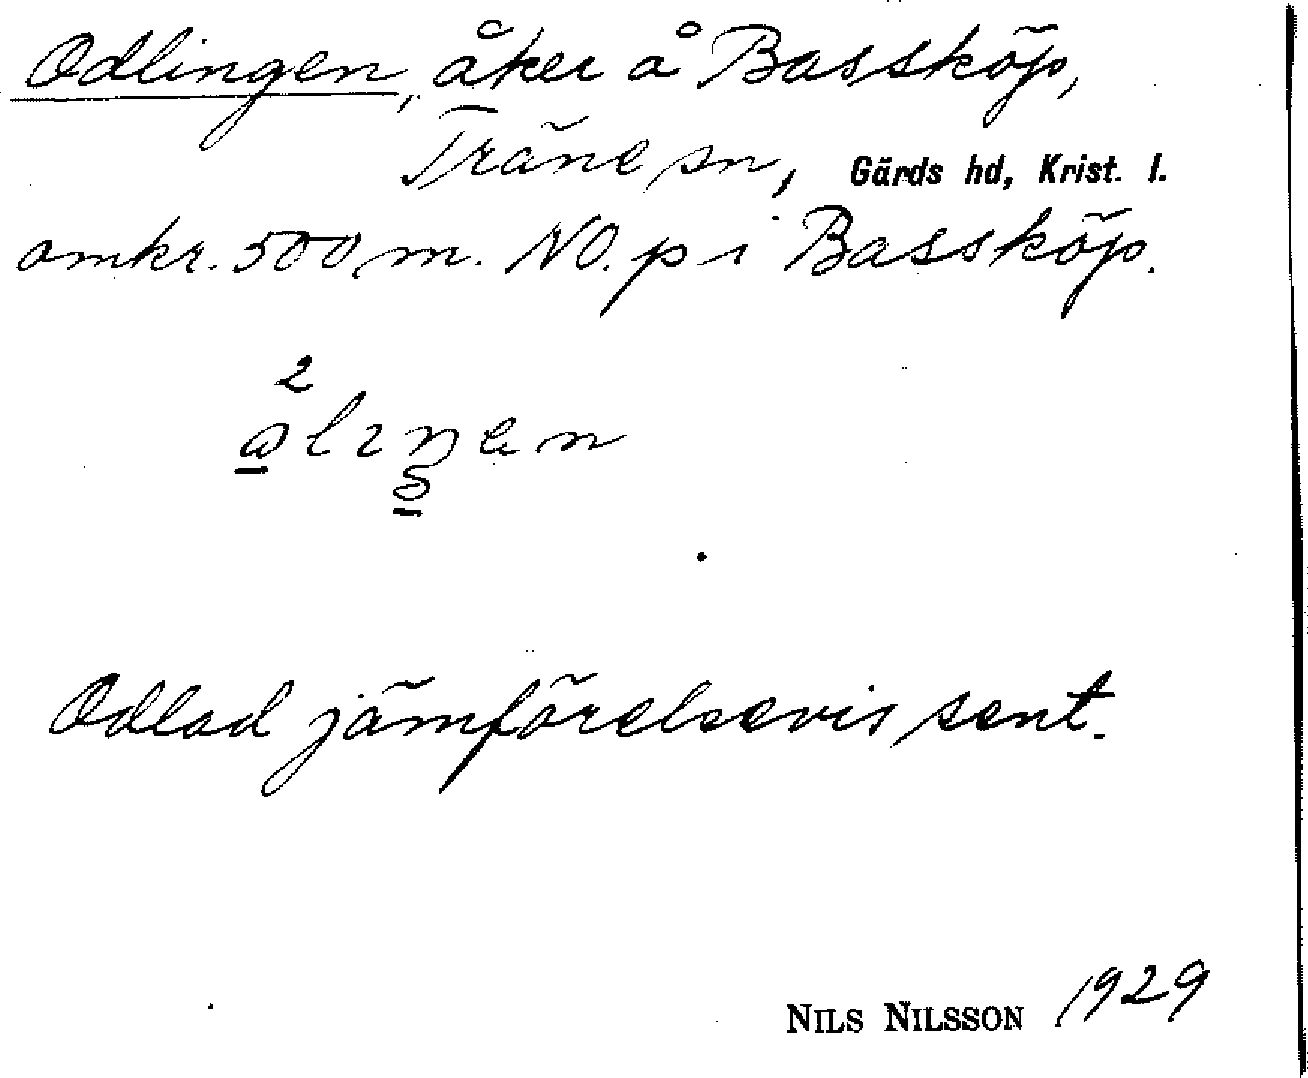 Odlingen, åker å Bassköp,
Träne sn, Gärds hd, Krist. l.
omkr. 500 m. NO. p i Bassköp.
Odlad jämförelsevis sent.
NILS NILSSON 1929